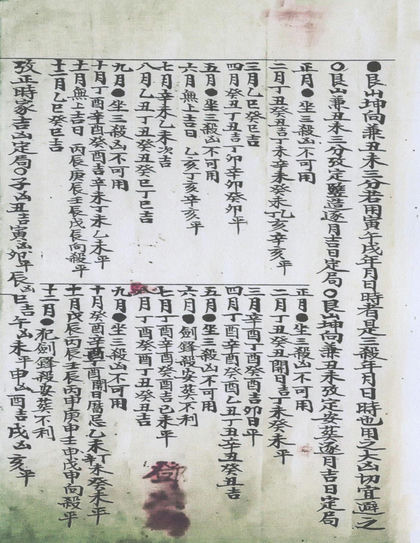 ●艮山坤向兼丑未三分若用寅午戌年月日時者是三殺年月日時也用之大凶切宜避之
○艮山兼丑未三分攷定豎造逐月吉日定局○艮山坤向兼丑未攷定安葬逐月吉日定局
正月●坐三殺凶不可用
二月丁丑癸丑吉丁未辛未癸未乙亥辛亥平
三月乙巳癸巳吉
四月癸丑丁丑吉丁卯辛卯癸卯平
五月●坐三殺凶不可用
六月無上吉日 乙亥丁亥辛亥平
七月辛未乙未次吉
八月乙丑丁丑癸丑癸巳丁巳吉
九月●坐三殺凶不可用
十月丁酉辛酉癸酉吉辛未丁未乙未平
十一月無上吉日 丙辰庚辰壬辰戊辰向殺平
十二月乙巳癸巳吉
正月●坐三殺凶不可用
二月丁丑癸丑開日吉丁未癸未平
三月辛酉丁酉癸酉吉卯日平
四月丁酉辛酉癸酉乙丑丁丑辛丑癸丑吉
五月●坐三殺凶不可用
六月●劍鋒殺安葬不利
七月丁酉癸酉辛酉吉己未平
八月丁酉癸酉丁丑癸丑吉
九月●坐三殺凶不可用
十月癸酉辛酉丁酉開日曆忌乙未丁未癸未平
十一月戊辰丙辰壬辰丙申庚申壬申戊申向殺平
十二月●犯劍鋒殺安葬不利
攷正時家吉凶定局○子凶丑吉寅凶卯平辰凶巳吉午凶未平申凶酉吉戌凶亥平